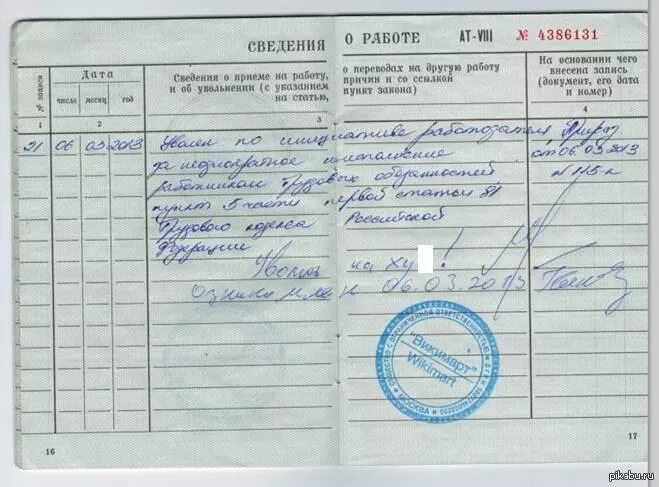 СВЕДЕНИЯ О РАБОТЕ AT-VIII № 4386131
№ записи
Дата
число месяц год
Сведения о приеме на работу, о переводах на другую работу
и об увольнении (с указанием причин и со ссылкой
на статью, пункт закона)
На основании чего
внесена запись
(документ, его дата
и номер)
1 2 3 4
21 06 03 2013 Уволен по инициативе работодателя Приказ
за неоднократное неисполнение от 06.03.2013
работником трудовых обязанностей
пункт 5 части первой статьи 81
Трудового кодекса Российской
Федерации
на ху !
06.03.2013
ОБЩЕСТВО С ОГРАНИЧЕННОЙ ОТВЕТСТВЕННОСТЬЮ
"Викимарт"
Wikimart
МОСКВА
16
17
pikabu.ru